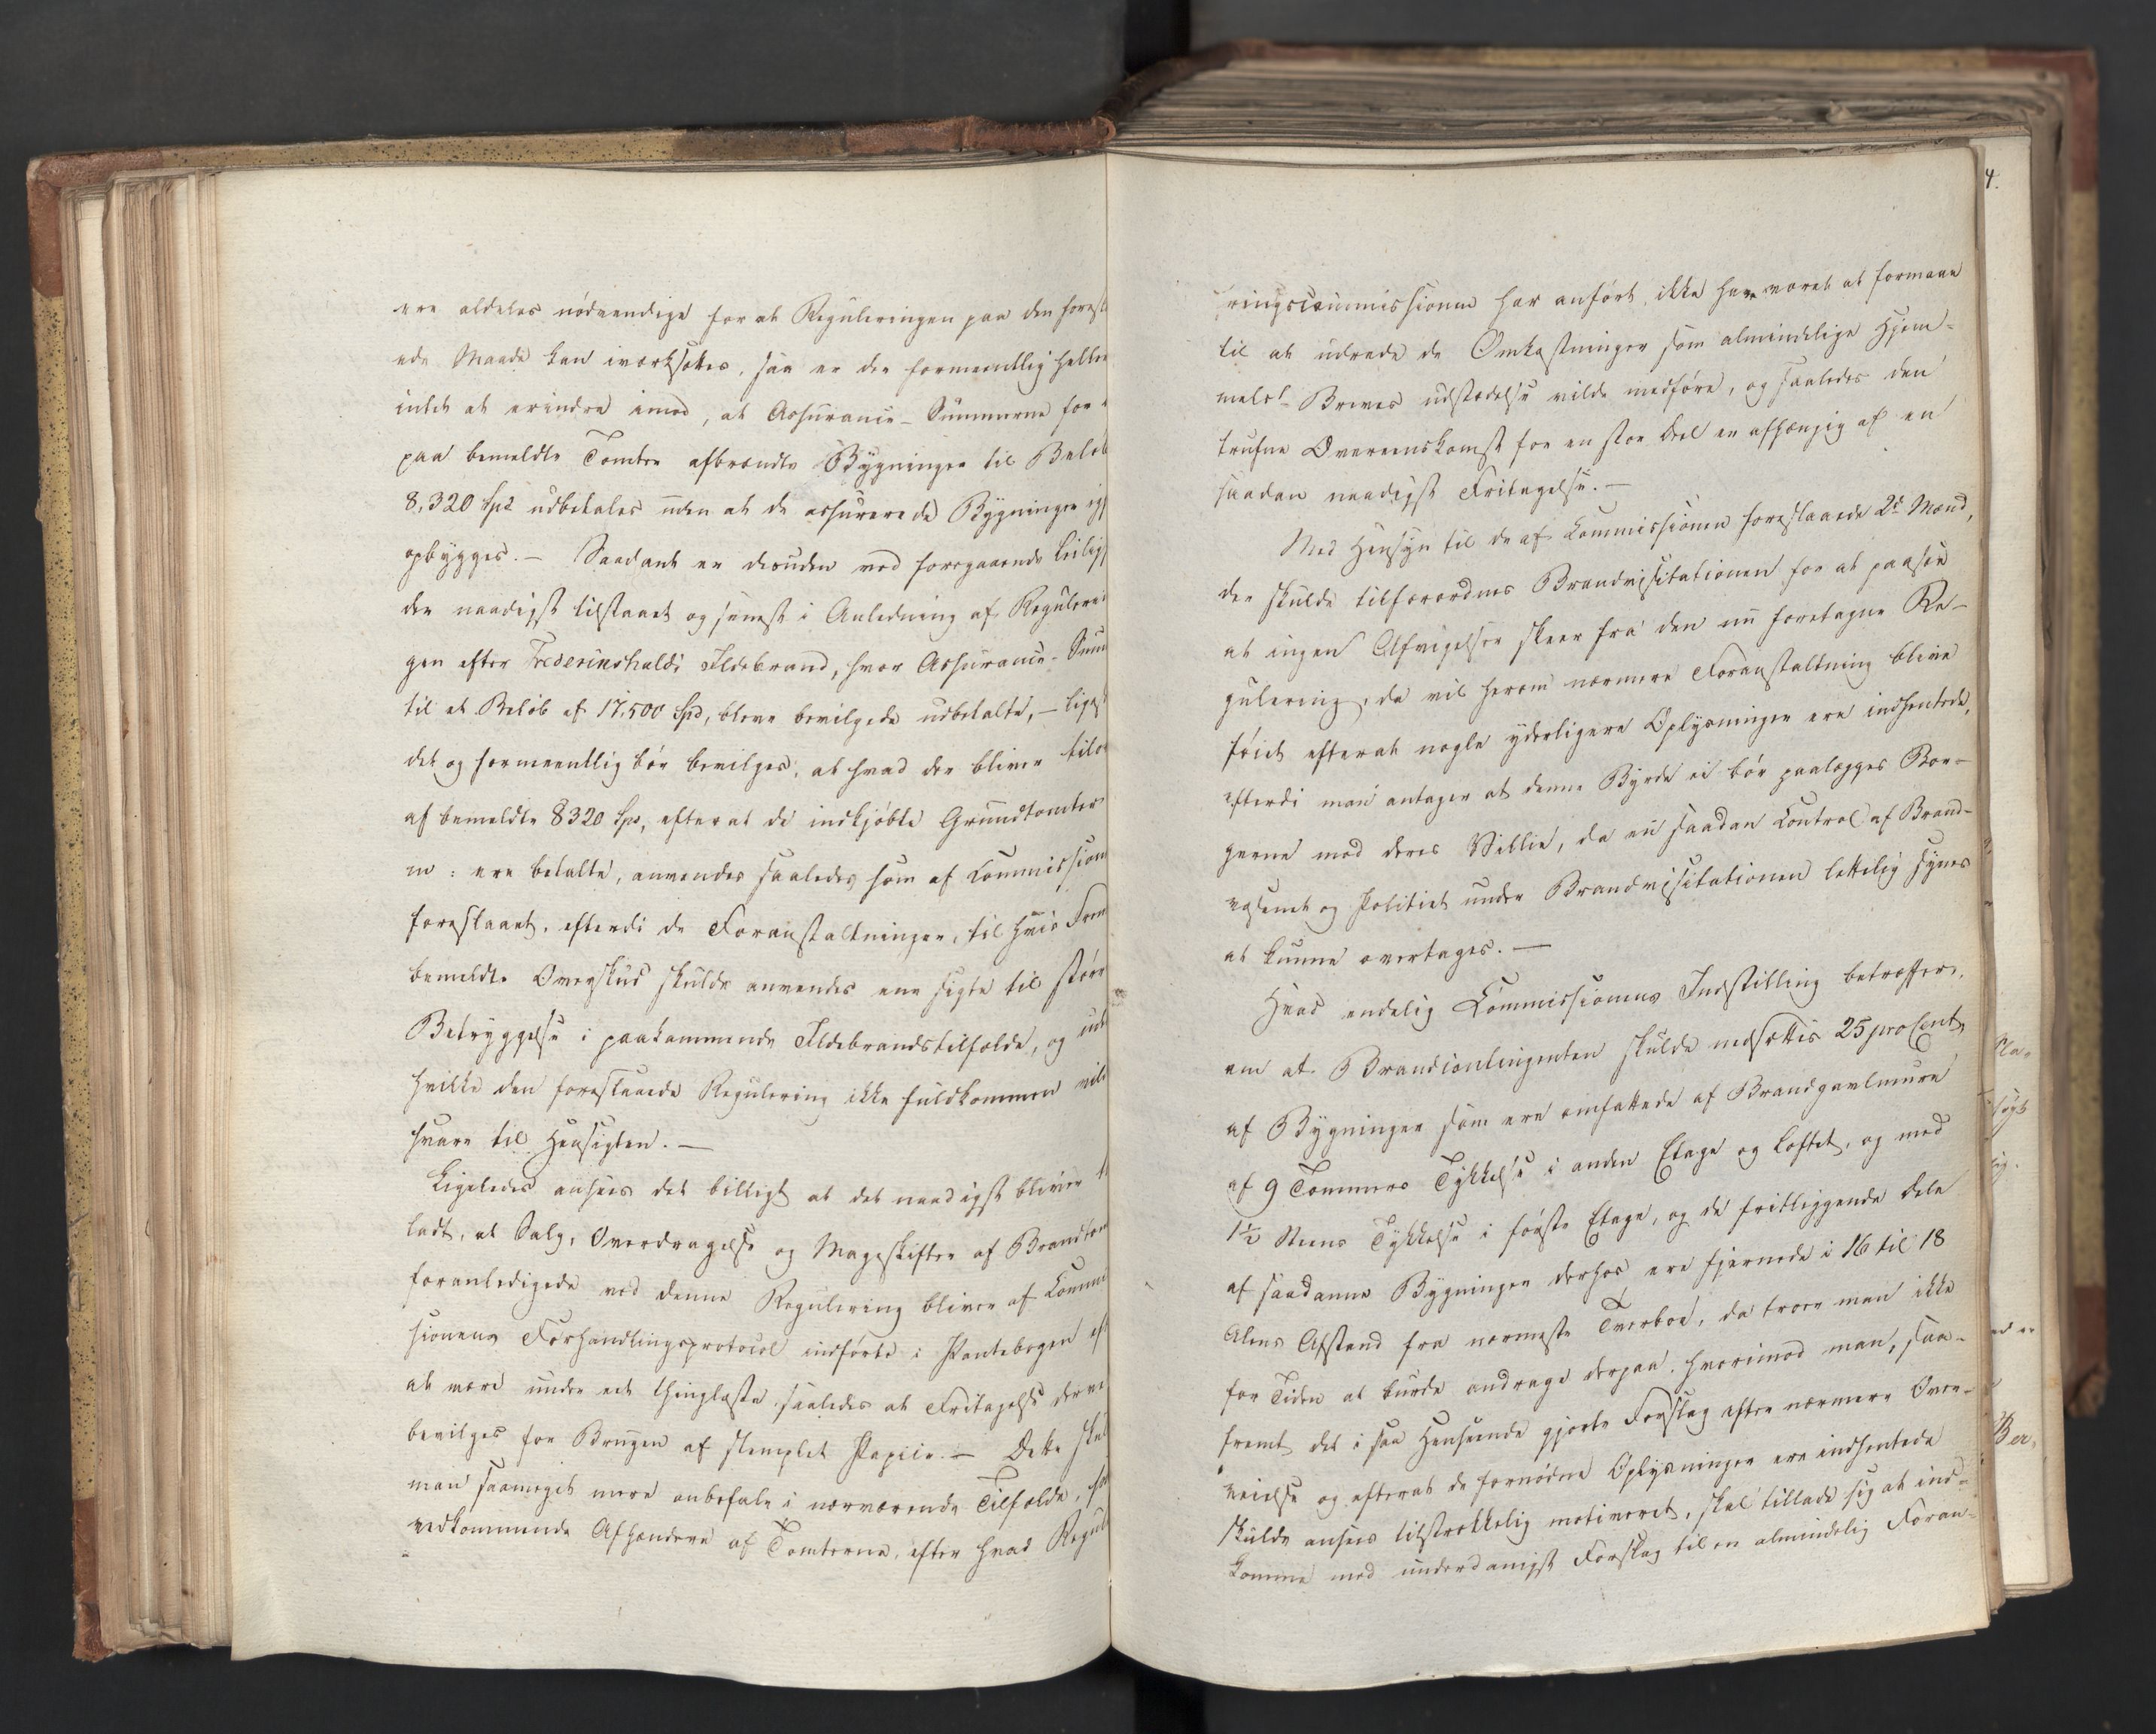 ere aldeles nödvendige for at Reguleringen paa den forest
ede Maade kan iværksættes, saa er der formeentlig heller
intet at erindre imod, at Assurance-Summerne for
paa bemeldte Tomter afbrændte Bygninger til Beløb
8,320 Spd udbetales uden at de assurerede Bygninger ig
opbygges. — Saadant er desuden ved foregaaende Leilig
der naadigst tilstaaet og senest i Anledning af Regulerin
gen efter Fredericshalds Ildebrand, hvor Assurance-Sum
til et Beløb af 17,500 Spd, bleve bevilgede udbetalte, — liges
det og formeentlig bör bevilges, at hvad der bliver tilo
af bemeldte 8320 Spd, efterat de indkjöbte Grundtomter
m: ere betalte, anvendes saaledes som af Commission
foreslaaet, efterdi de Foranstaltninger, til hvis Frem
bemeldte Overskud skulde anvendes ene sigte til större
Betryggelse i paakommende Ildebrandstilfælde, og uden
hvilke den foreslaaede Regulering ikke fuldkommen vild
svare til Hensigten. —
Ligeledes ansees det billigt at det naadigst bliver t
ladt, at Salg, Overdragelse og Mageskifter af Brandtom
foranledigede ved denne Regulering bliver af Commis
sionens Forhandlingsprotocol indförte i Pantebogen ef
at være under eet thinglæste saaledes at Fritagelse derve
bevilges for Brugen af stemplet Papiir. — Dette skul
man saameget mere anbefale i nærværende Tilfælde, so
vedkommende Afhændere af Tomterne, efter hvad Regul
4.
ringscommissionen har anfört, ikke have været at formaae
til at udrede de Omkostninger som almindelige Hjem-
mels-Breves udstædelse vilde medföre, og saaledes den
trufne Overeenskomst for en stor Deel er afhængig af en
saadan naadigst Fritagelse. —
Med Hensyn til de af Commissionen foreslaaede 2de Mænd,
der skulde tilforordnes Brandvisitationen for at paasee
at ingen Afvigelser skeer fra den nu foretagne Re-
gulering, da vil herom nærmere Foranstaltning blive
föiet efterat nogle yderligere Oplysninger ere indhentede,
efterdi man antager at denne Byrde ei bör paalægges Bor-
gerne mod deres Villie, da en saadan Control af Brand-
væsenet og Politiet under Brandvisitationen lettelig synes
at kunne overtages. —
Hvad endelig Commissionens Indstilling betræffer,
om at Brandcontingenten skulde nedsættes 25 pro Cent,
af Bygninger som ere omfattede af Brandgavlmure
af 9 Tommers Tykkelse i anden Etage og Loftet, og med
1½ Steens Tykkelse i förste Etage, og de fritliggende Dele
af saadanne Bygninger derhos ere fjernede i 16 til 18
Alens Afstand fra nærmeste Tverboe, da troer man ikke
for Tiden at burde andrage derpaa, hvorimod man, saa-
fremt det i saa Henseende gjorte Forslag efter nærmere Over-
veielse og efterat de fornödne Oplysninger ere indhentede
skulde ansees tilstrækkelig motiveret, skal tillade sig at ind-
komme med underdanigst Forslag til en almindelig Foran-